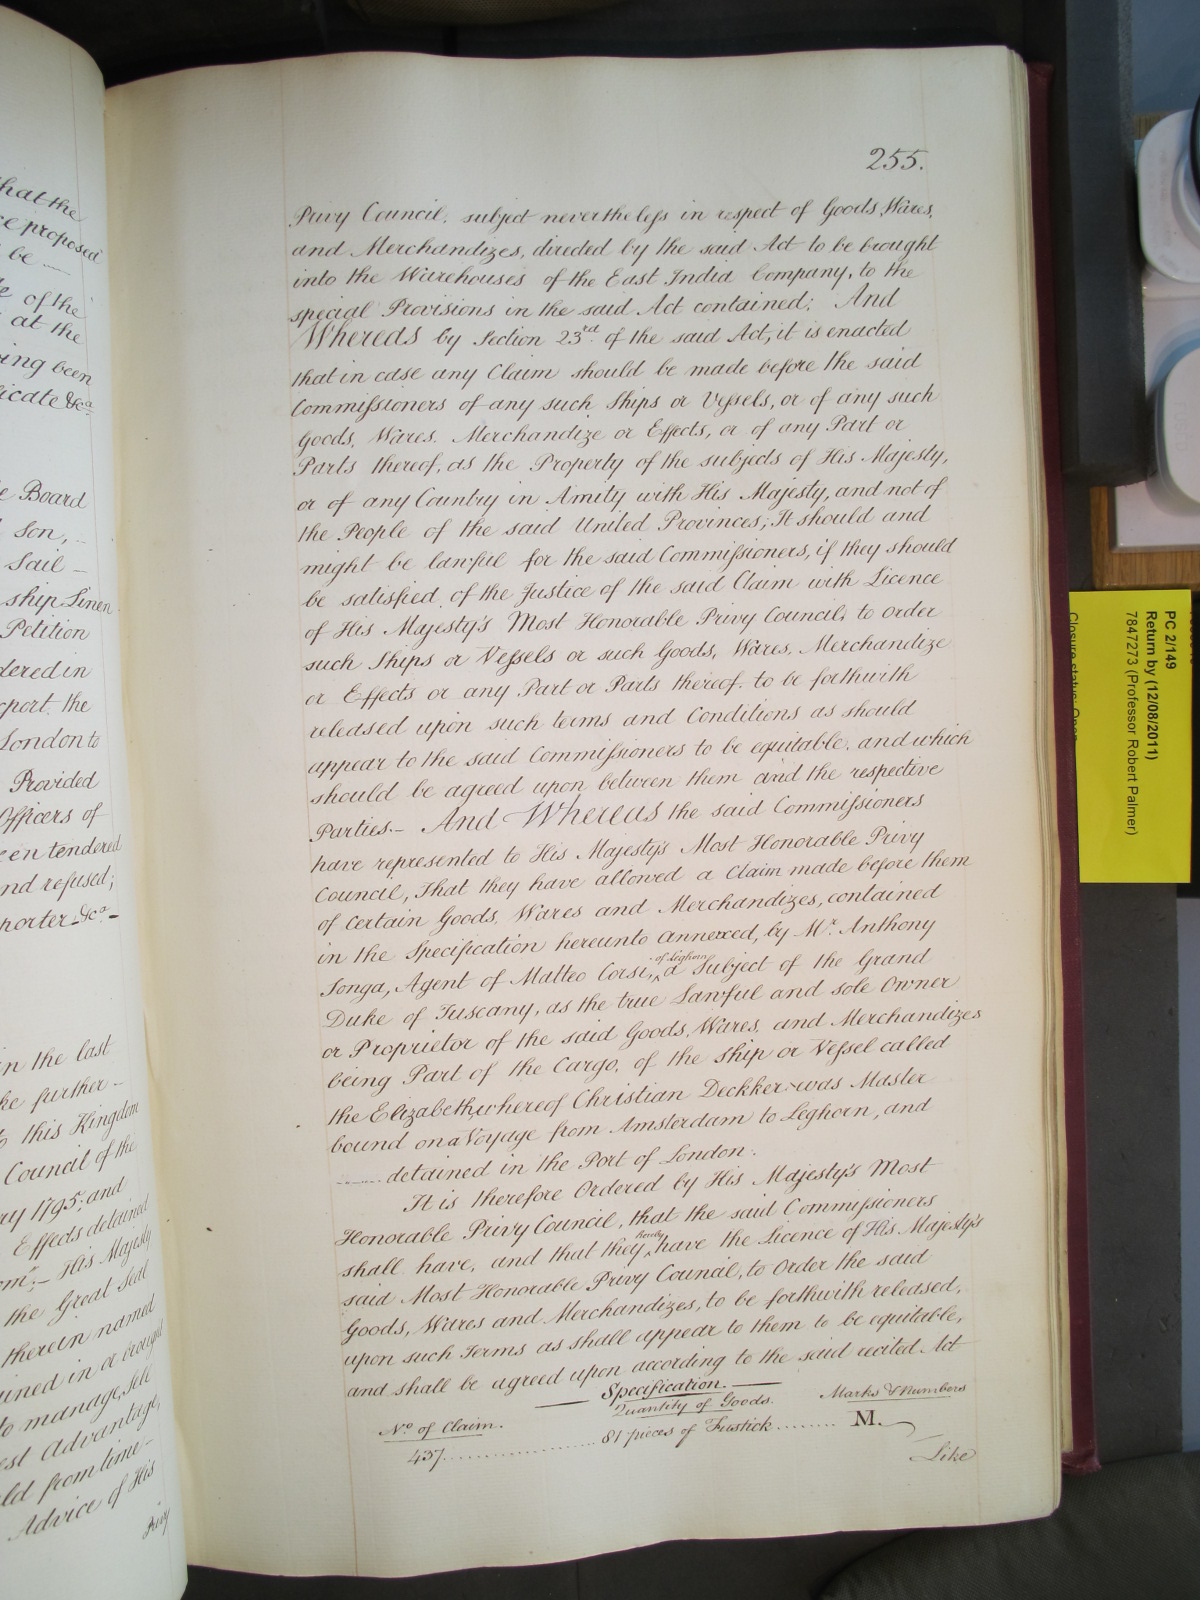 hat the
ce proposed
be
of the
at the
ing been
icate &ca
e Board
son,
Sail
ship Linen
Petition
dered in
port the
London to
Provided
Officers of
een tendered
nd refused;
porter &ca
in the last
ke further
this Kingdom
Council of the
ry 1795; and
Effects detained
His Majesty
the Great Seal
therein named
ined in or brought
to manage, sell
est Advantage,
ld from time
Advice of His
Privy
255.
Privy Council, subject nevertheless in respect of Goods, Wares,
and Merchandizes, directed by the said Act to be brought
into the Warehouses of the East India Company, to the
special Provisions in the said Act contained; And
Whereas by Section 23rd. of the said Act, it is enacted
that in case any Claim should be made before the said
Commissioners of any such Ships or Vessels, or of any such
Goods, Wares, Merchandize or Effects, or of any Part or
Parts thereof, as the Property of the subjects of His Majesty,
or of any Country in Amity with His Majesty, and not of
the People of the said United Provinces; It should and
might be lawful for the said Commissioners, if they should
be satisfied of the Justice of the said Claim with Licence
of His Majesty's Most Honorable Privy Council, to order
such Ships or Vessels or such Goods, Wares, Merchandize
or Effects or any Part or Parts thereof, to be forthwith
released upon such terms and Conditions as should
appear to the said Commissioners to be equitable, and which
should be agreed upon between them and the respective
Parties.— And Whereas the said Commissioners
have represented to His Majesty's Most Honorable Privy
Council, That they have allowed a Claim made before them
of Certain Goods, Wares and Merchandizes, contained
in the Specification hereunto annexed, by Mr. Anthony
Songa, Agent of Matteo Corsi, of Leghorn a Subject of the Grand
Duke of Tuscany, as the true Lawful and sole Owner
or Proprietor of the said Goods, Wares, and Merchandizes
being Part of the Cargo, of the Ship or Vessel called
the Elizabeth, whereof Christian Deckker was Master
bound on a Voyage from Amsterdam to Leghorn, and
detained in the Port of London.
It is therefore Ordered by His Majesty's Most
Honorable Privy Council, that the said Commissioners
shall have, and that they hereby have the Licence of His Majesty's
said Most Honorable Privy Council, to Order the said
Goods, Wares and Merchandizes, to be forthwith released,
upon such Terms as shall appear to them to be equitable,
and shall be agreed upon according to the said recited Act
Specification.
No. of Claim. Quantity of Goods. Marks & Numbers
437 81 pieces of Fustick M.
Like
PC 2/149
Return by (12/08/2011)
7847273 (Professor Robert Palmer)
Closure status: Open